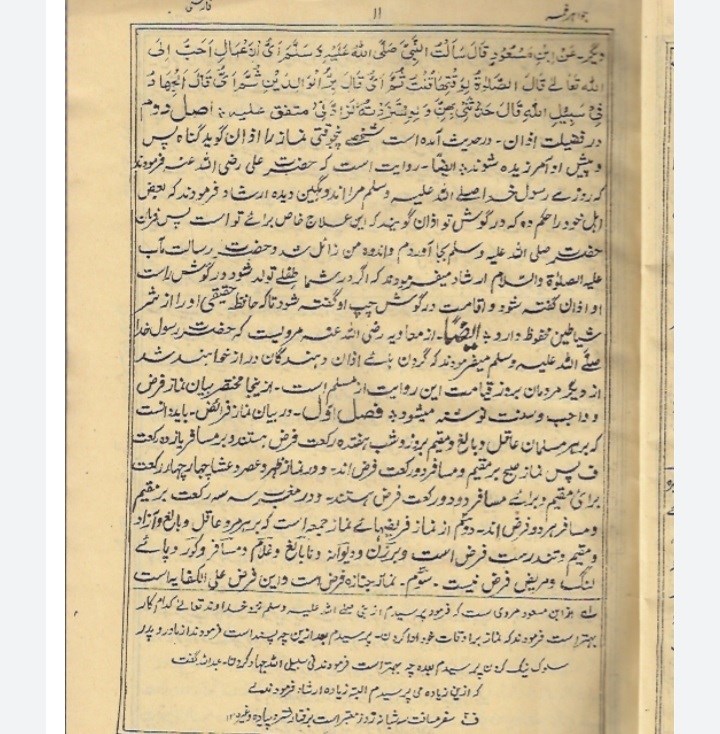 جواهر فقه ۱۱ فارسی
دیگر۔ عَنْ اِبْنِ مَسْعُوْدٍ قَالَ سَاَلْتُ النَّبِیَّ صَلَّی اللّٰهُ عَلَیْهِ وَسَلَّمَ اَیُّ الْاَعْمَالِ اَحَبُّ اِلَی
اللّٰهِ تَعَالٰی قَالَ الصَّلٰوةُ لِوَقْتِهَا قُلْتُ ثُمَّ اَیُّ قَالَ بِرُّ الْوَالِدَیْنِ ثُمَّ اَیُّ قَالَ الْجِهَادُ
فِیْ سَبِیْلِ اللّٰهِ قَالَ حَدَّثَنِیْ بِهِنَّ وَلَوِ اسْتَزَدْتُهٗ لَزَادَنِیْ متفق علیه ۔ اصل دوم
در فضیلت اذان ۔ در حدیث آمده است شخصے پنجوقتی نماز را اذان گوید گناه پس
و پیش او آمرزیده شوند ۔ ایضًا ۔ روایت است که حضرت علی رضی الله عنه فرمودند
که روزے رسول خدا صلے الله علیه وسلم مرا اندوهگین دیده ارشاد فرمودند که بعض
اهل خود را حکم ده که در گوش تو اذان گویند که این علاج خاص برائے تو است پس فرمان
حضرت صلی الله علیه وسلم بجا آوردم و اندوه من زائل شد و حضرت رسالت مآب
علیه الصلوٰة والسلام ارشاد میفرمودند که اگر در شما طفلے تولد شود در گوش راست
او اذان گفته شود و اقامت در گوش چپ او گفته شود تا که حافظ حقیقی او را از شر
شیاطین محفوظ دارد ۔ ایضًا ۔ از معاویه رضی الله عنه مرویست که حضرت رسول خدا
صلے الله علیه وسلم میفرمودند که گردن هائے اذان دهندگان دراز خواهند شد
از دیگر مردمان بروز قیامت این روایت از مسلم است ۔ ازینجا مختصر بیان نماز فرض
و واجب و سنت نوشته میشود ۔ فصل اوّل ۔ در بیان نماز فرائض ۔ باید دانست
که بر هر مسلمان عاقل و بالغ و مقیم بروز و شب هفده رکعت فرض هستند و بر مسافر یازده رکعت
ف پس نماز صبح بر مقیم و مسافر دو رکعت فرض اند ۔ و در نماز ظهر و عصر و عشا چهار چهار رکعت
برائے مقیم و برائے مسافر دو دو رکعت فرض هستند ۔ و در مغرب سه سه رکعت بر مقیم
و مسافر هر دو فرض اند ۔ دوم از نماز فریضهائے نماز جمعه است که بر هر مرد عاقل و بالغ و آزاد
و مقیم و تندرست فرض است و بر زن و دیوانه و نابالغ و غلام و مسافر و کور و پائے
لنگ و مریض فرض نیست ۔ سوم ۔ نماز جنازه فرض است و این فرض علی الکفایه است
ابن مسعود مروی است که فرمود پرسیدم از نبی صلے الله علیه وسلم نزد خداوند تعالیٰ کدام کار
بهتر است فرمودند که نماز بر اوقات خود ادا کردن ۔ پرسیدم بعد ازین چه پسند است فرمودند از مادر و پدر
سلوک نیک کردن پرسیدم بعده چه بهتر است فرمودند فی سبیل الله جهاد کردن ۔ عبدالله گفت
که ازین زیاده می پرسیدم البته زیاده ارشاد فرمودندے
ف سفر مسافت سه شبانه روز معتبر است برفتار شتر و پیاده وغیره ۱۲